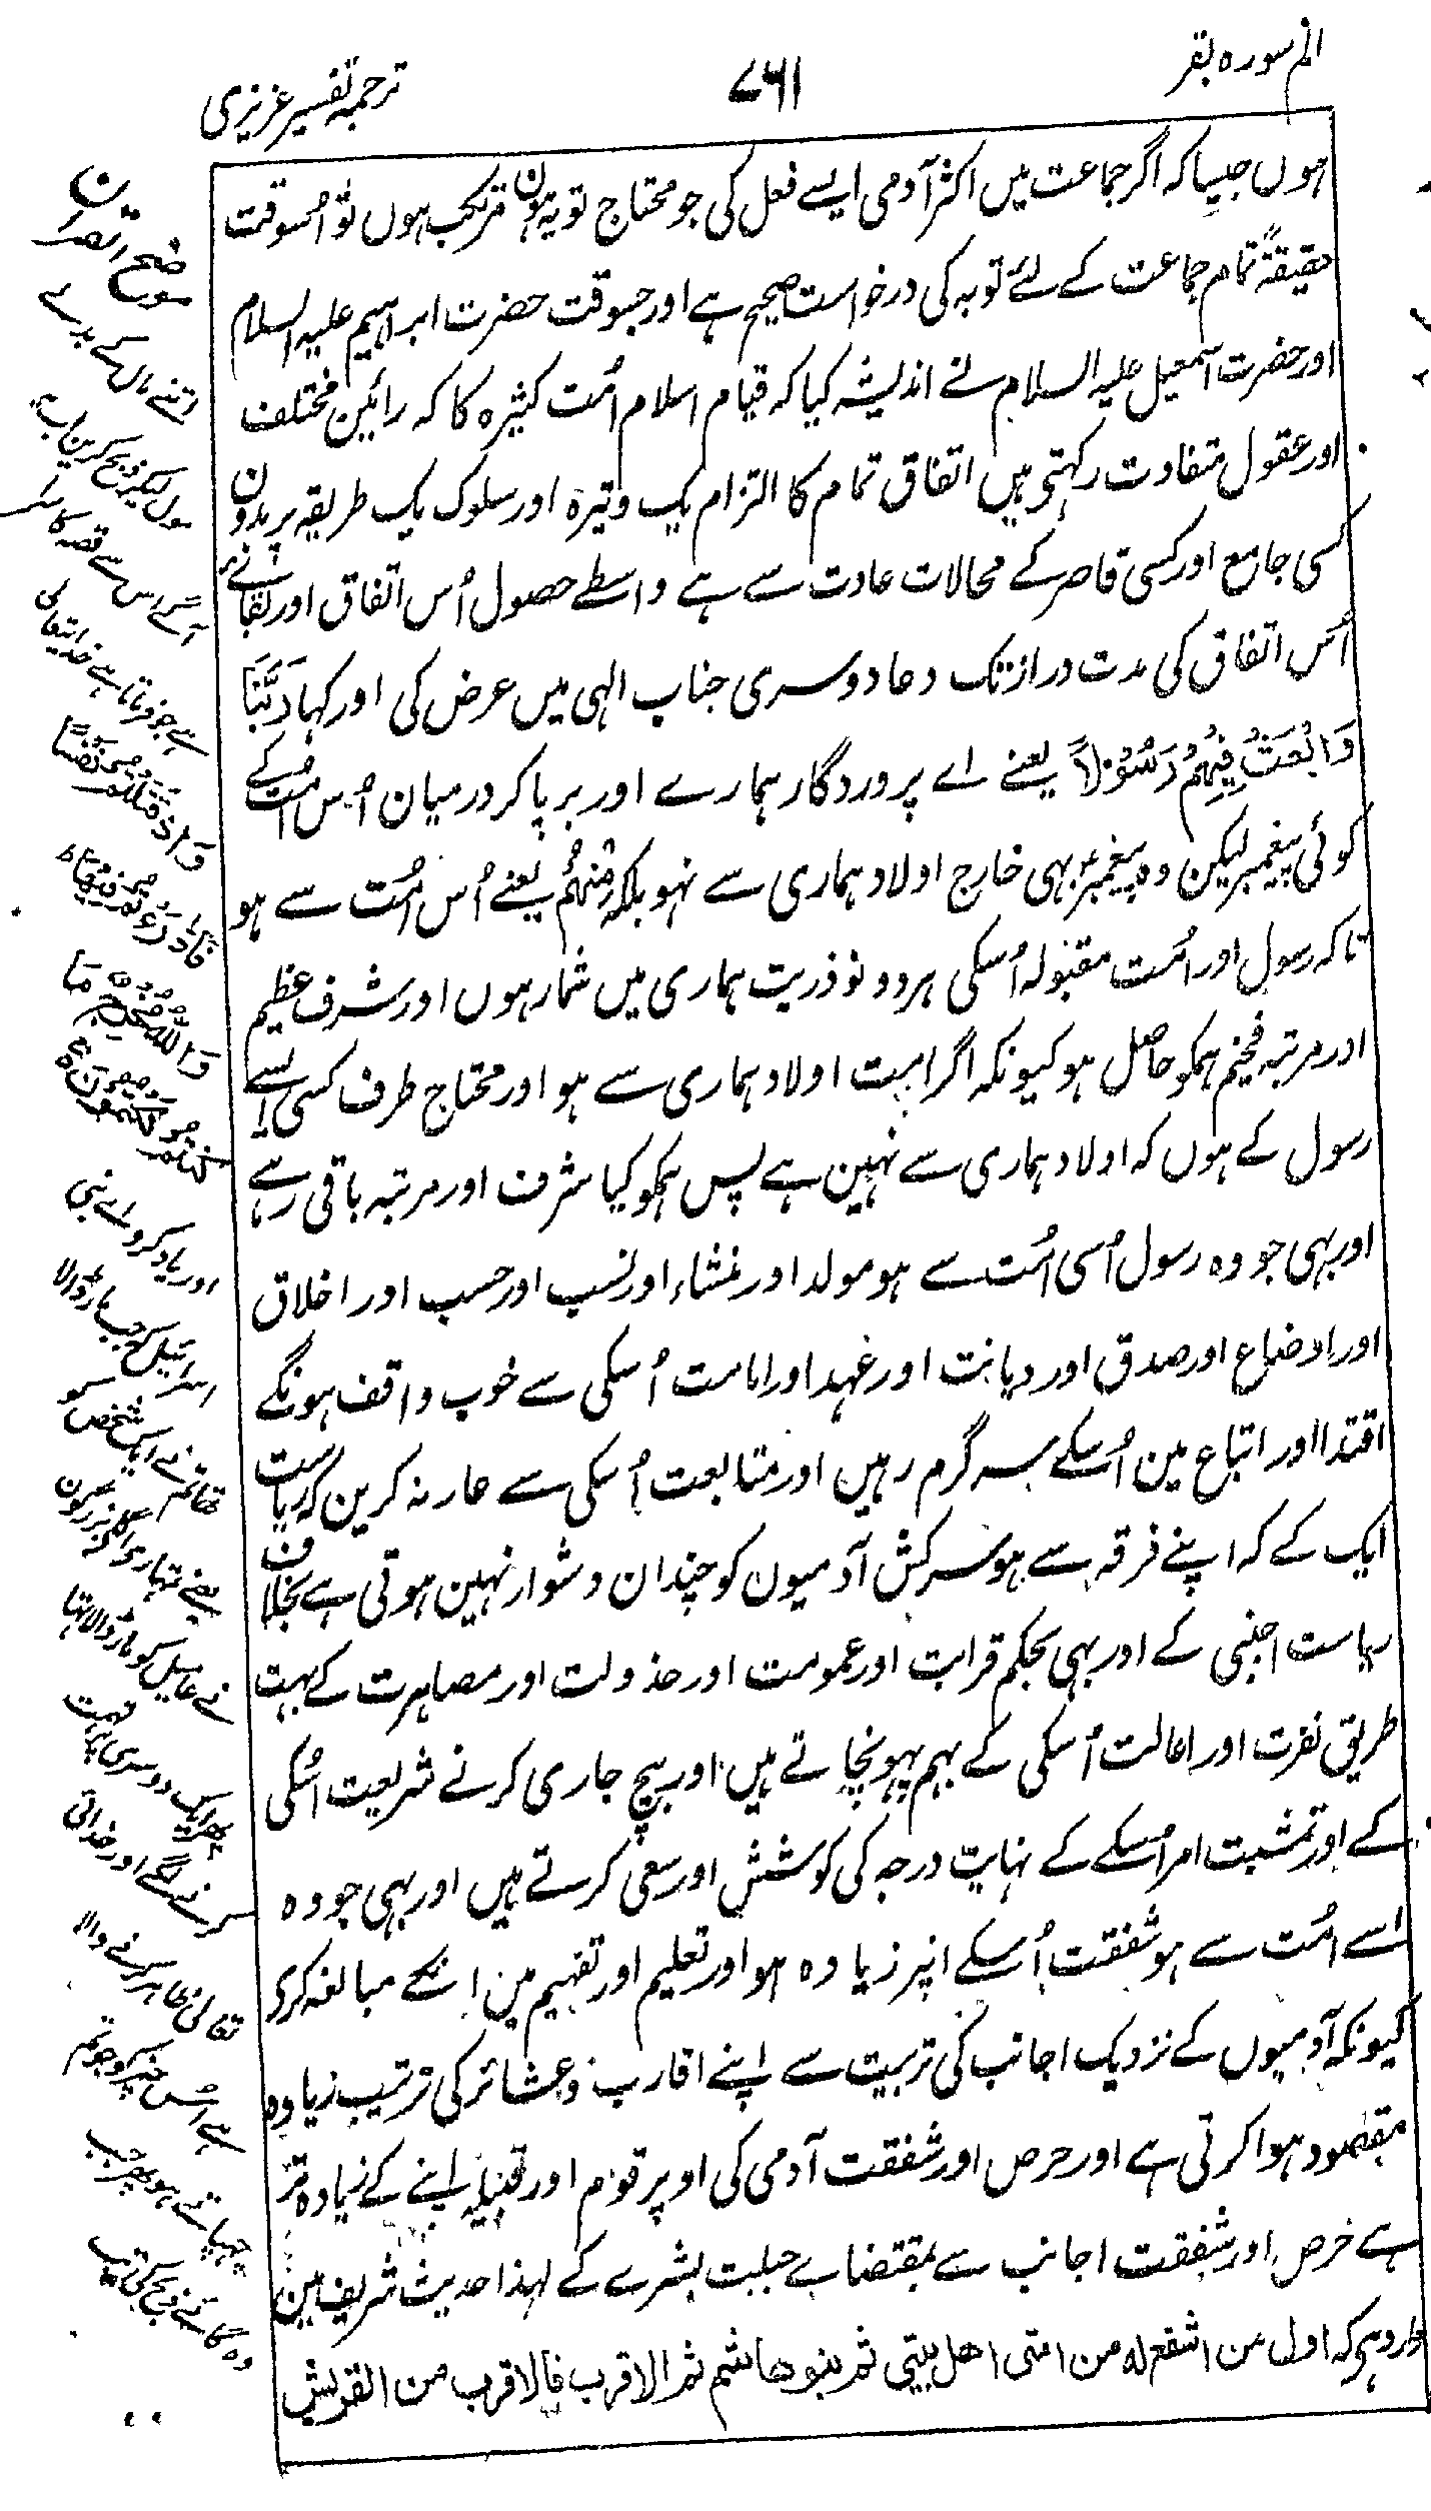 الم سورہ بقر
۷۶۱
ترجمہ تفسیر عزیزی
ہوں جیسا کہ اگر جماعت میں اکثر آدمی ایسے فعل کی جو محتاج توبہ ہون مرتکب ہوں تو اُسوقت
حقیقۃً تمام جماعت کے لئے توبہ کی درخواست صحیح ہے اور جسوقت حضرت ابراہیم علیہ السلام
اور حضرت اسمعیل علیہ السلام نے اندیشہ کیا کہ قیام اسلام اُمت کثیرہ کا کہ رائین مختلف
اور عقول متفاوت رکہتی ہیں اتفاق تمام کا التزام یک وتیرہ اور سلوک یک طریقہ پر بدون
کسی جامع اور کسی قاصر کے محالات عادت سے ہے واسطے حصول اُس اتفاق اور بقائے
اُس اتفاق کی مدت دراز تک دعا دوسری جناب الہی میں عرض کی اور کہا رَبَّنَا
وَابْعَثْ فِیْہِمْ رَسُوْلاً یعنے اے پروردگار ہمارے اور برپا کر درمیان اُس اُمت کے
کوئی پیغمبر لیکن وہ پیغمبر بہی خارج اولاد ہماری سے نہو بلکہ مِنْہُمْ یعنے اُس اُمت سے ہو
تاکہ رسول اور اُمت مقبولہ اُسکی ہر دو نو ذریت ہماری میں شمار ہوں اور شرف عظیم
اور مرتبہ فخیم ہمکو حاصل ہو کیونکہ اگر امت اولاد ہماری سے ہو اور محتاج طرف کسی ایسے
رسول کے ہوں کہ اولاد ہماری سے نہین ہے پس ہمکو کیا شرف اور مرتبہ باقی رہے
اور بہی جو وہ رسول اُسی اُمت سے ہو مولد اور منشاء اور نسب اور حسب اور اخلاق
اور اوضاع اور صدق اور دیانت اور عہد اور امانت اُسکی سے خوب واقف ہونگے
اقتدا اور اتباع مین اُسکے سرگرم رہیں اور متابعت اُسکی سے عار نہ کرین کہ ریاست
ایک کے کہ اپنے فرقہ سے ہو سرکش آدمیون کو چندان دشوار نہین ہوتی ہے بخلاف
ریاست اجنبی کے اور بہی بحکم قرابت اور عمومت اور خذولت اور مصاہرت کے بہت
طریق نصرت اور اعانت اُسکی کے بہم پہونچاتے ہیں اور بیچ جاری کرنے شریعت اُسکی
کے اور تمشیت امر اُسکے کے نہایت درجہ کی کوشش اور سعی کرتے ہیں اور بہی جو وہ
اسے اُمت سے ہو شفقت اُسکے انپر زیادہ ہو اور تعلیم اور تفہیم مین انکے مبالغہ کری
کیونکہ آدمیوں کے نزدیک اجانب کی تربیت سے اپنے اقارب و عشائر کی تربیت زیادہ
مقصود ہوا کرتی ہے اور حرص اور شفقت آدمی کی اوپر قوم اور قبیلہ اپنے کے زیادہ تر
ہے حرص اور شفقت اجانب سے بمقتضاے جبلت بشرے کے لہذا حدیث شریف مین
وارد ہی کہ اول من اشفع لہ من امتی اھل بیتی ثم بنو ھاشم ثم الاقرب فالاقرب من القریش
موضح القران
اتنے مال کے بدلے
مول لیکر ذبح کرین اب
آگے اس سے قصہ کا
ہے جو فرماتا ہے خدایتعالی
وَاِذْ قَتَلْتُمْ نَفْسًا
فَادّٰرَءْتُمْ فِیْہَا
وَاللّٰہُ مُخْرِجٌ مَّا
کُنْتُمْ تَکْتُمُوْنَ
اور یاد کرو اے بنی
اسرائیل کہ جب مار ڈالا
تھا تمنے ایک شخص کو
یعنے تمہاری اگلے بزرگون
نے عامیل کو مار ڈالا تہا
پھر ایک دوسری پر تہمت
کرنے لگے اور خدائی
تعالی ظاہر کرنے والا
ہے اُس چیز کو جو تم
چھپاتے ہو پھر جب
وہ گائے ذبح کی تب